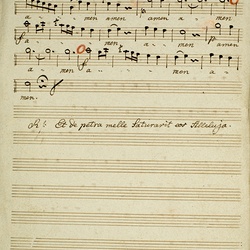 a - - men amen amen a men
a - - - - amen a - - men
a - - men a - - - - men a
men.
R: Et de petra melle Saturavit eos Alleluja.